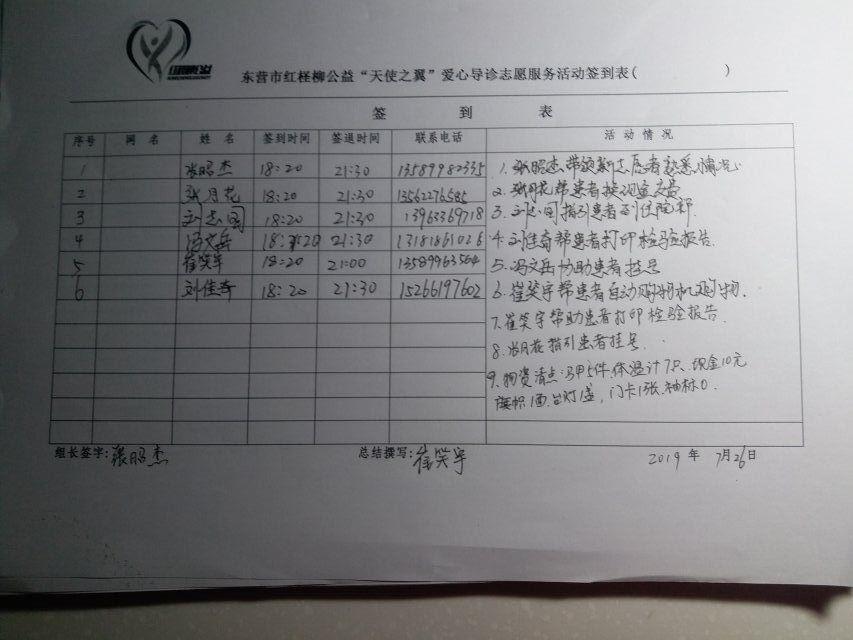 东营市红柽柳公益“天使之翼”爱心导诊志愿服务活动签到表( )
签 到 表
序号 网 名 姓 名 签到时间 签退时间 联系电话 活 动 情 况
1 张昭杰 18:20 21:30 13589982335
2 张月花 18:20 21:30 13562276585
3 刘志国 18:20 21:30 13963369718
4 冯文岳 18:20 21:30 13181861026
5 崔笑宇 18:20 21:00 13589963564
6 刘佳奇 18:20 21:30 15266197602
1.张昭杰带领新志愿者熟悉情况.
2.张月花帮患者
3.刘志国指引患者到住院部
4.刘佳奇帮患者打印检验报告.
5.冯文岳协助患者挂号
6.崔笑宇帮患者自动购物机购物.
7.崔笑宇帮助患者打印检验报告.
8.张月花指引患者挂号.
9.物资清点:马甲5件.体温计7只、现金10元
旗帜1面.台灯1盏,门卡1张.袖标0.
组长签字:张昭杰 总结撰写:崔笑宇 2019年 7月26日